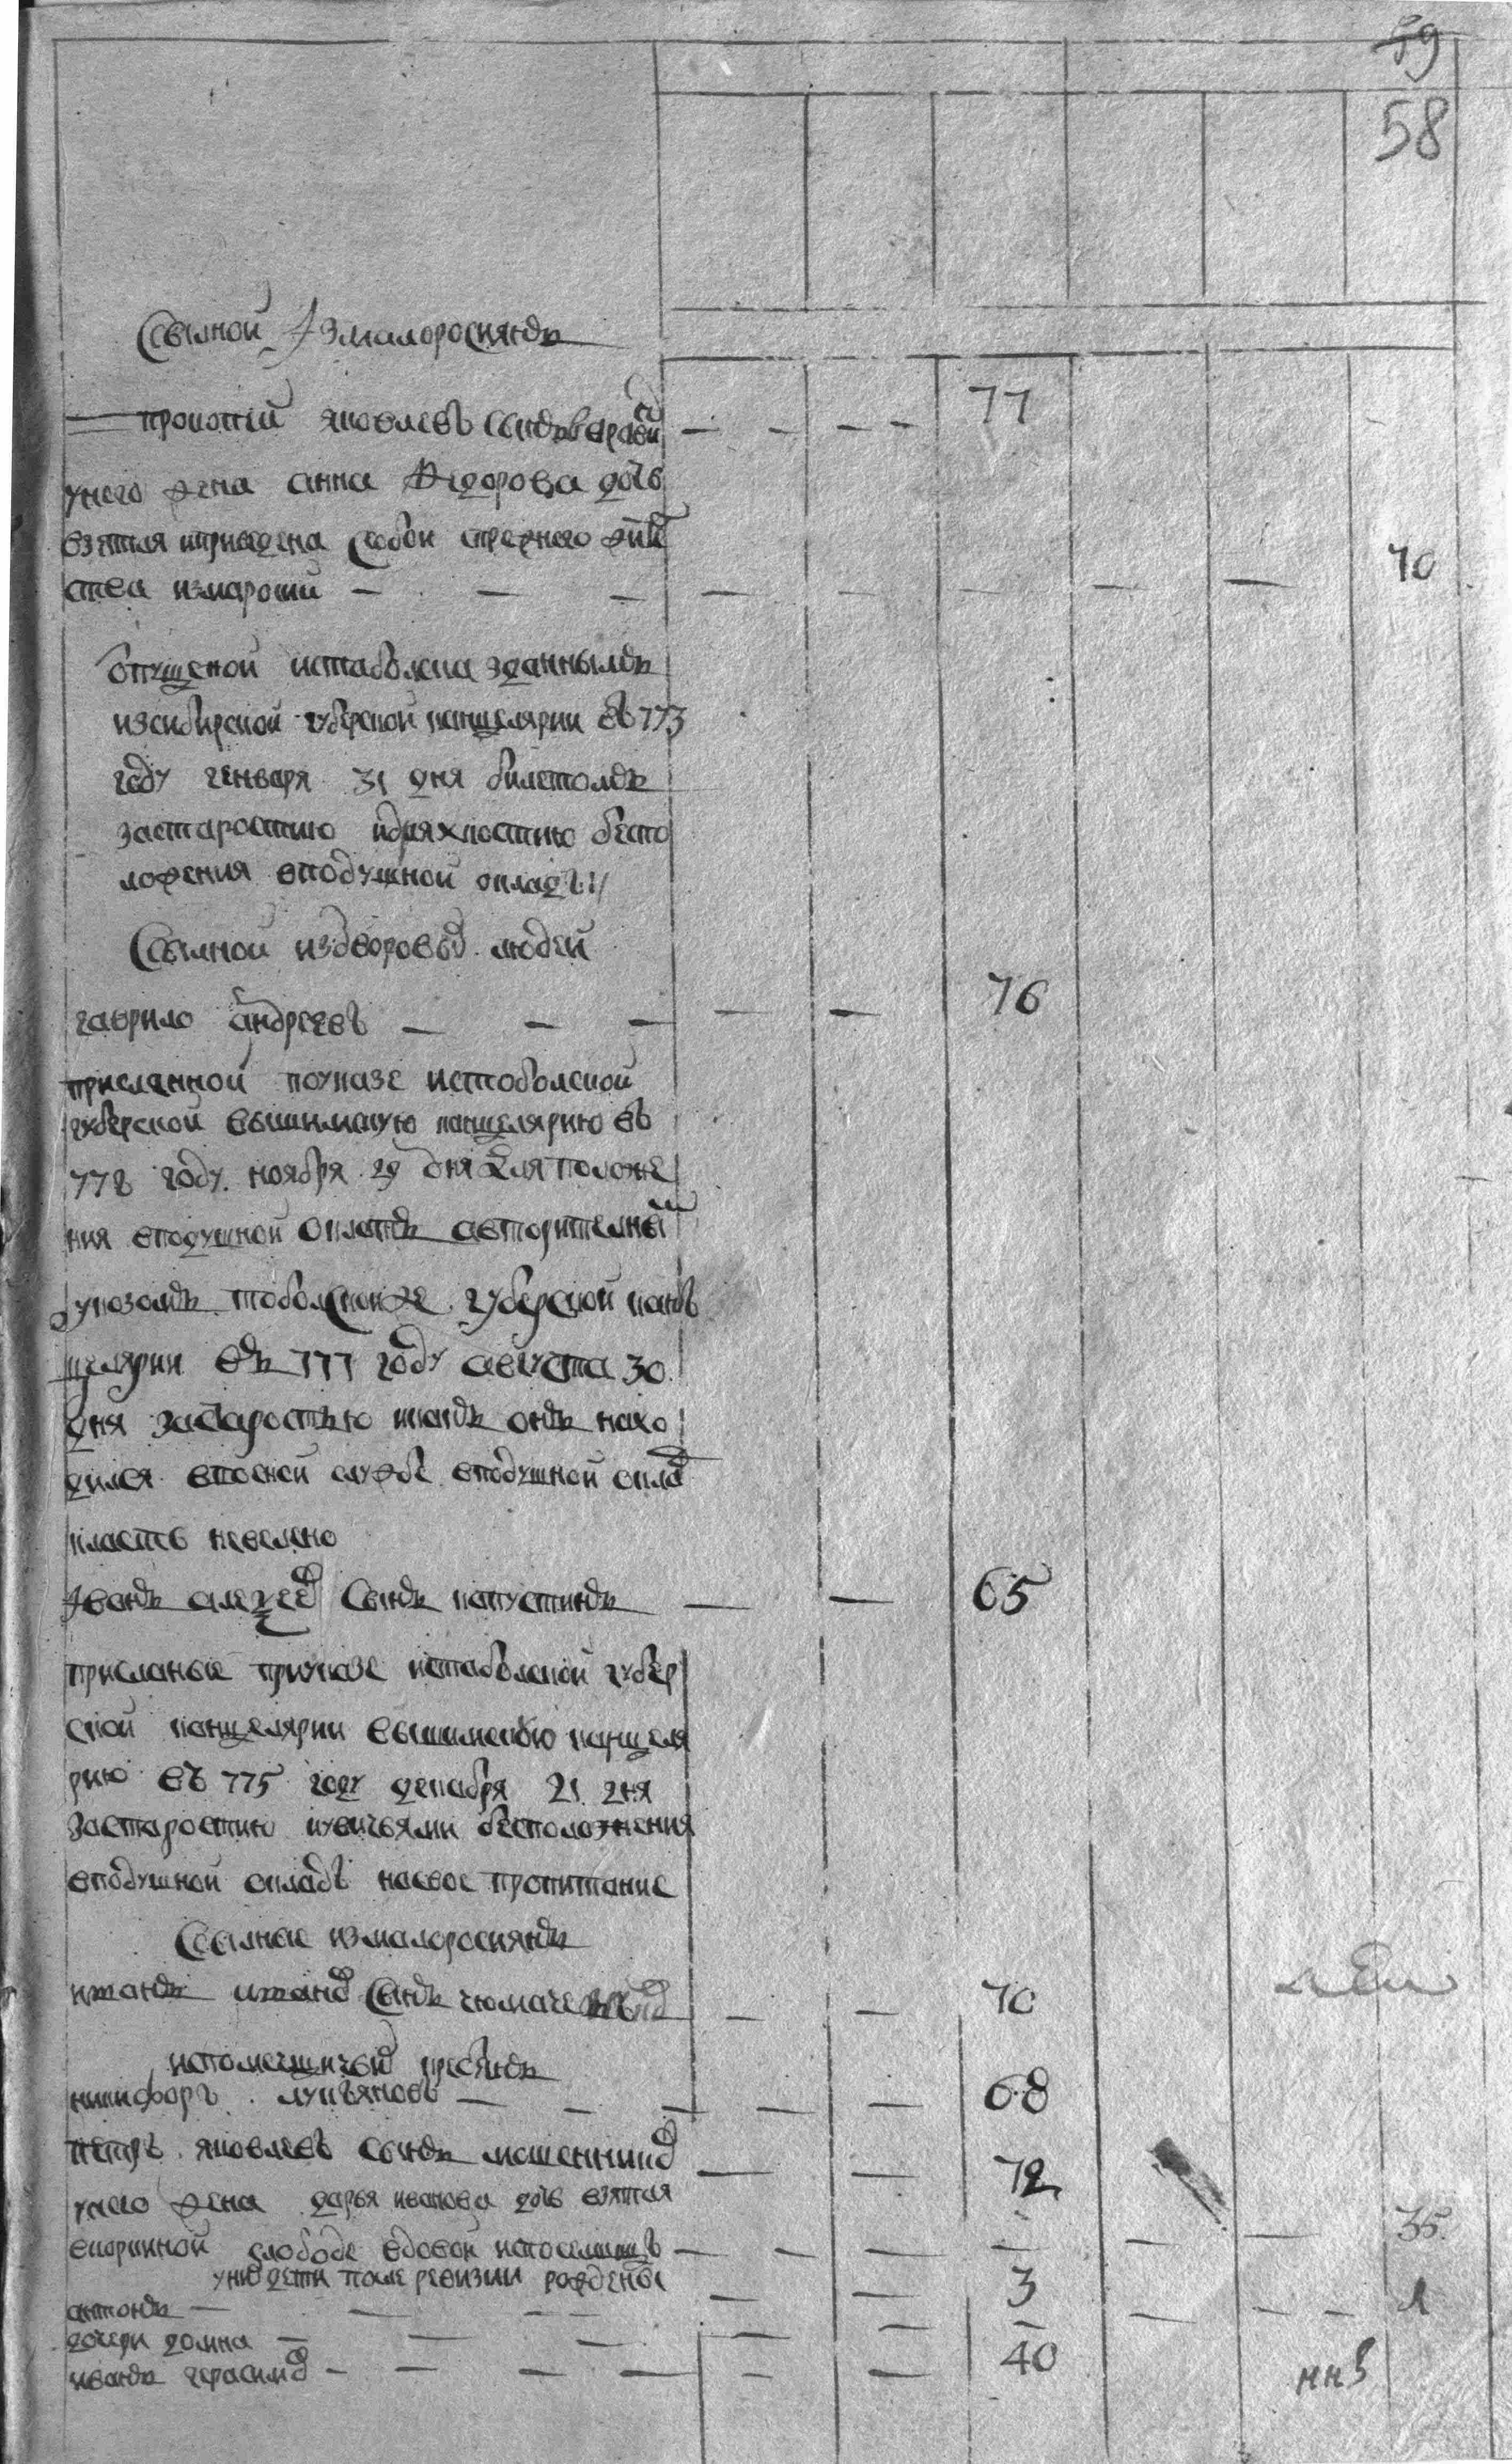 59
58
Ссылной Измалоросиянъ
прокопей яковлевъ сынъ 77
унего жена анна Федорова дочь
взятая иприведена собои спрежнего жите
ства измароши — — — — — — — — — 70
отпущеной истаболска зданнымъ
изсибирской губерской канцелярии въ 773
году генваря 31 дня билетомъ
застаростию идряхлостию беспо
ложения вподушной окладъ
Ссылной издворовых людей
гаврило андреевъ — — — — — 76
присланной поуказе истоболской
губерской вышимскую канцелярию въ
772 году ноября 29 дня для положе
ния вподушной окладъ авторителней
указомъ тоболскойже губерской кан
целярии въ 777 году августа 30
дня застаростью ишакъ онъ нахо
дился втоеной службе вподушной окла
класть невелено
Иванъ алеѯеев сынъ капустинъ — — 65
присланые приуказе истаболской губер
ской канцелярии вышимскою канцеля
рию въ 775 году декабря 21 дня
застаростию иувечьями бесположнения
вподушной окладъ насвое пропитание
Ссылные измалоросиянъ
сынъ — — 70
ноѳ
испомещичьих кресянъ
никифоръ лукъяновъ — — — — — 68
петръ яковлевъ сынъ мошенник — — 72
унего жена дарья иванова дочь взятая
вкоркиной слободе вдовои испоселшиц — — — — — — 35
уних дети после ревизии рожденые
антонъ — — — — — 3
дочери домна — — — — — — — — 1
иванъ герасимов — — — — — — 40